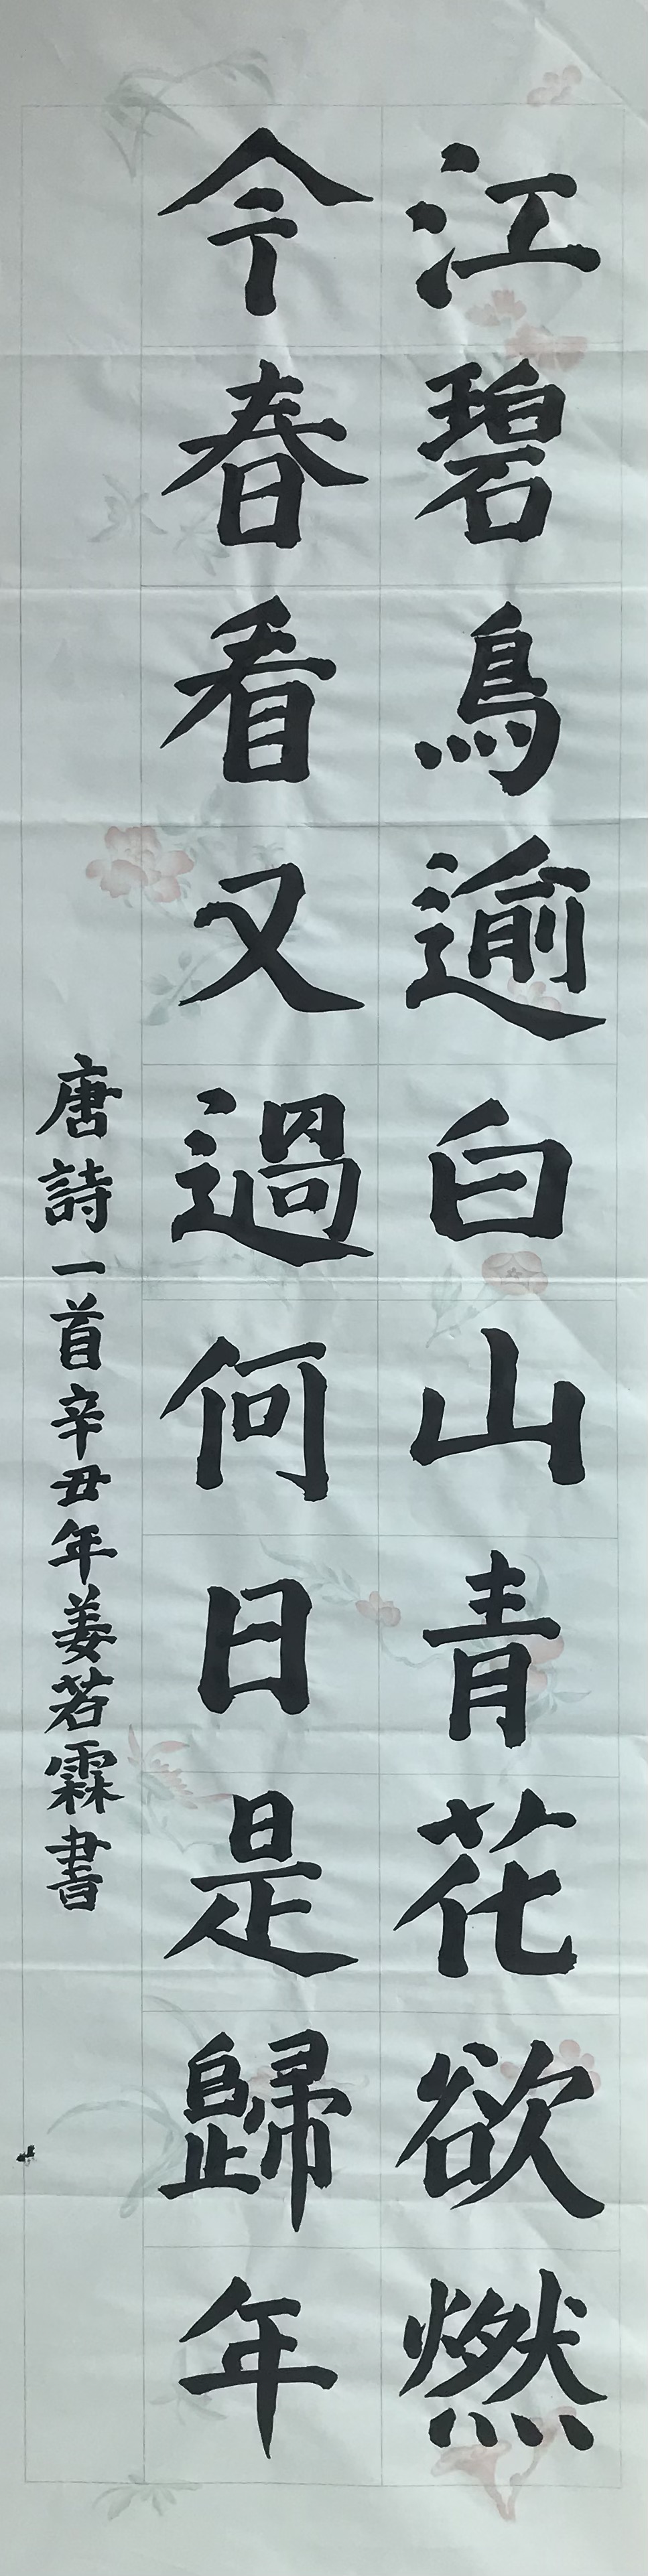 江碧鳥逾白山青花欲燃
今春看又過何日是歸年
唐詩一首辛丑年姜若霖書